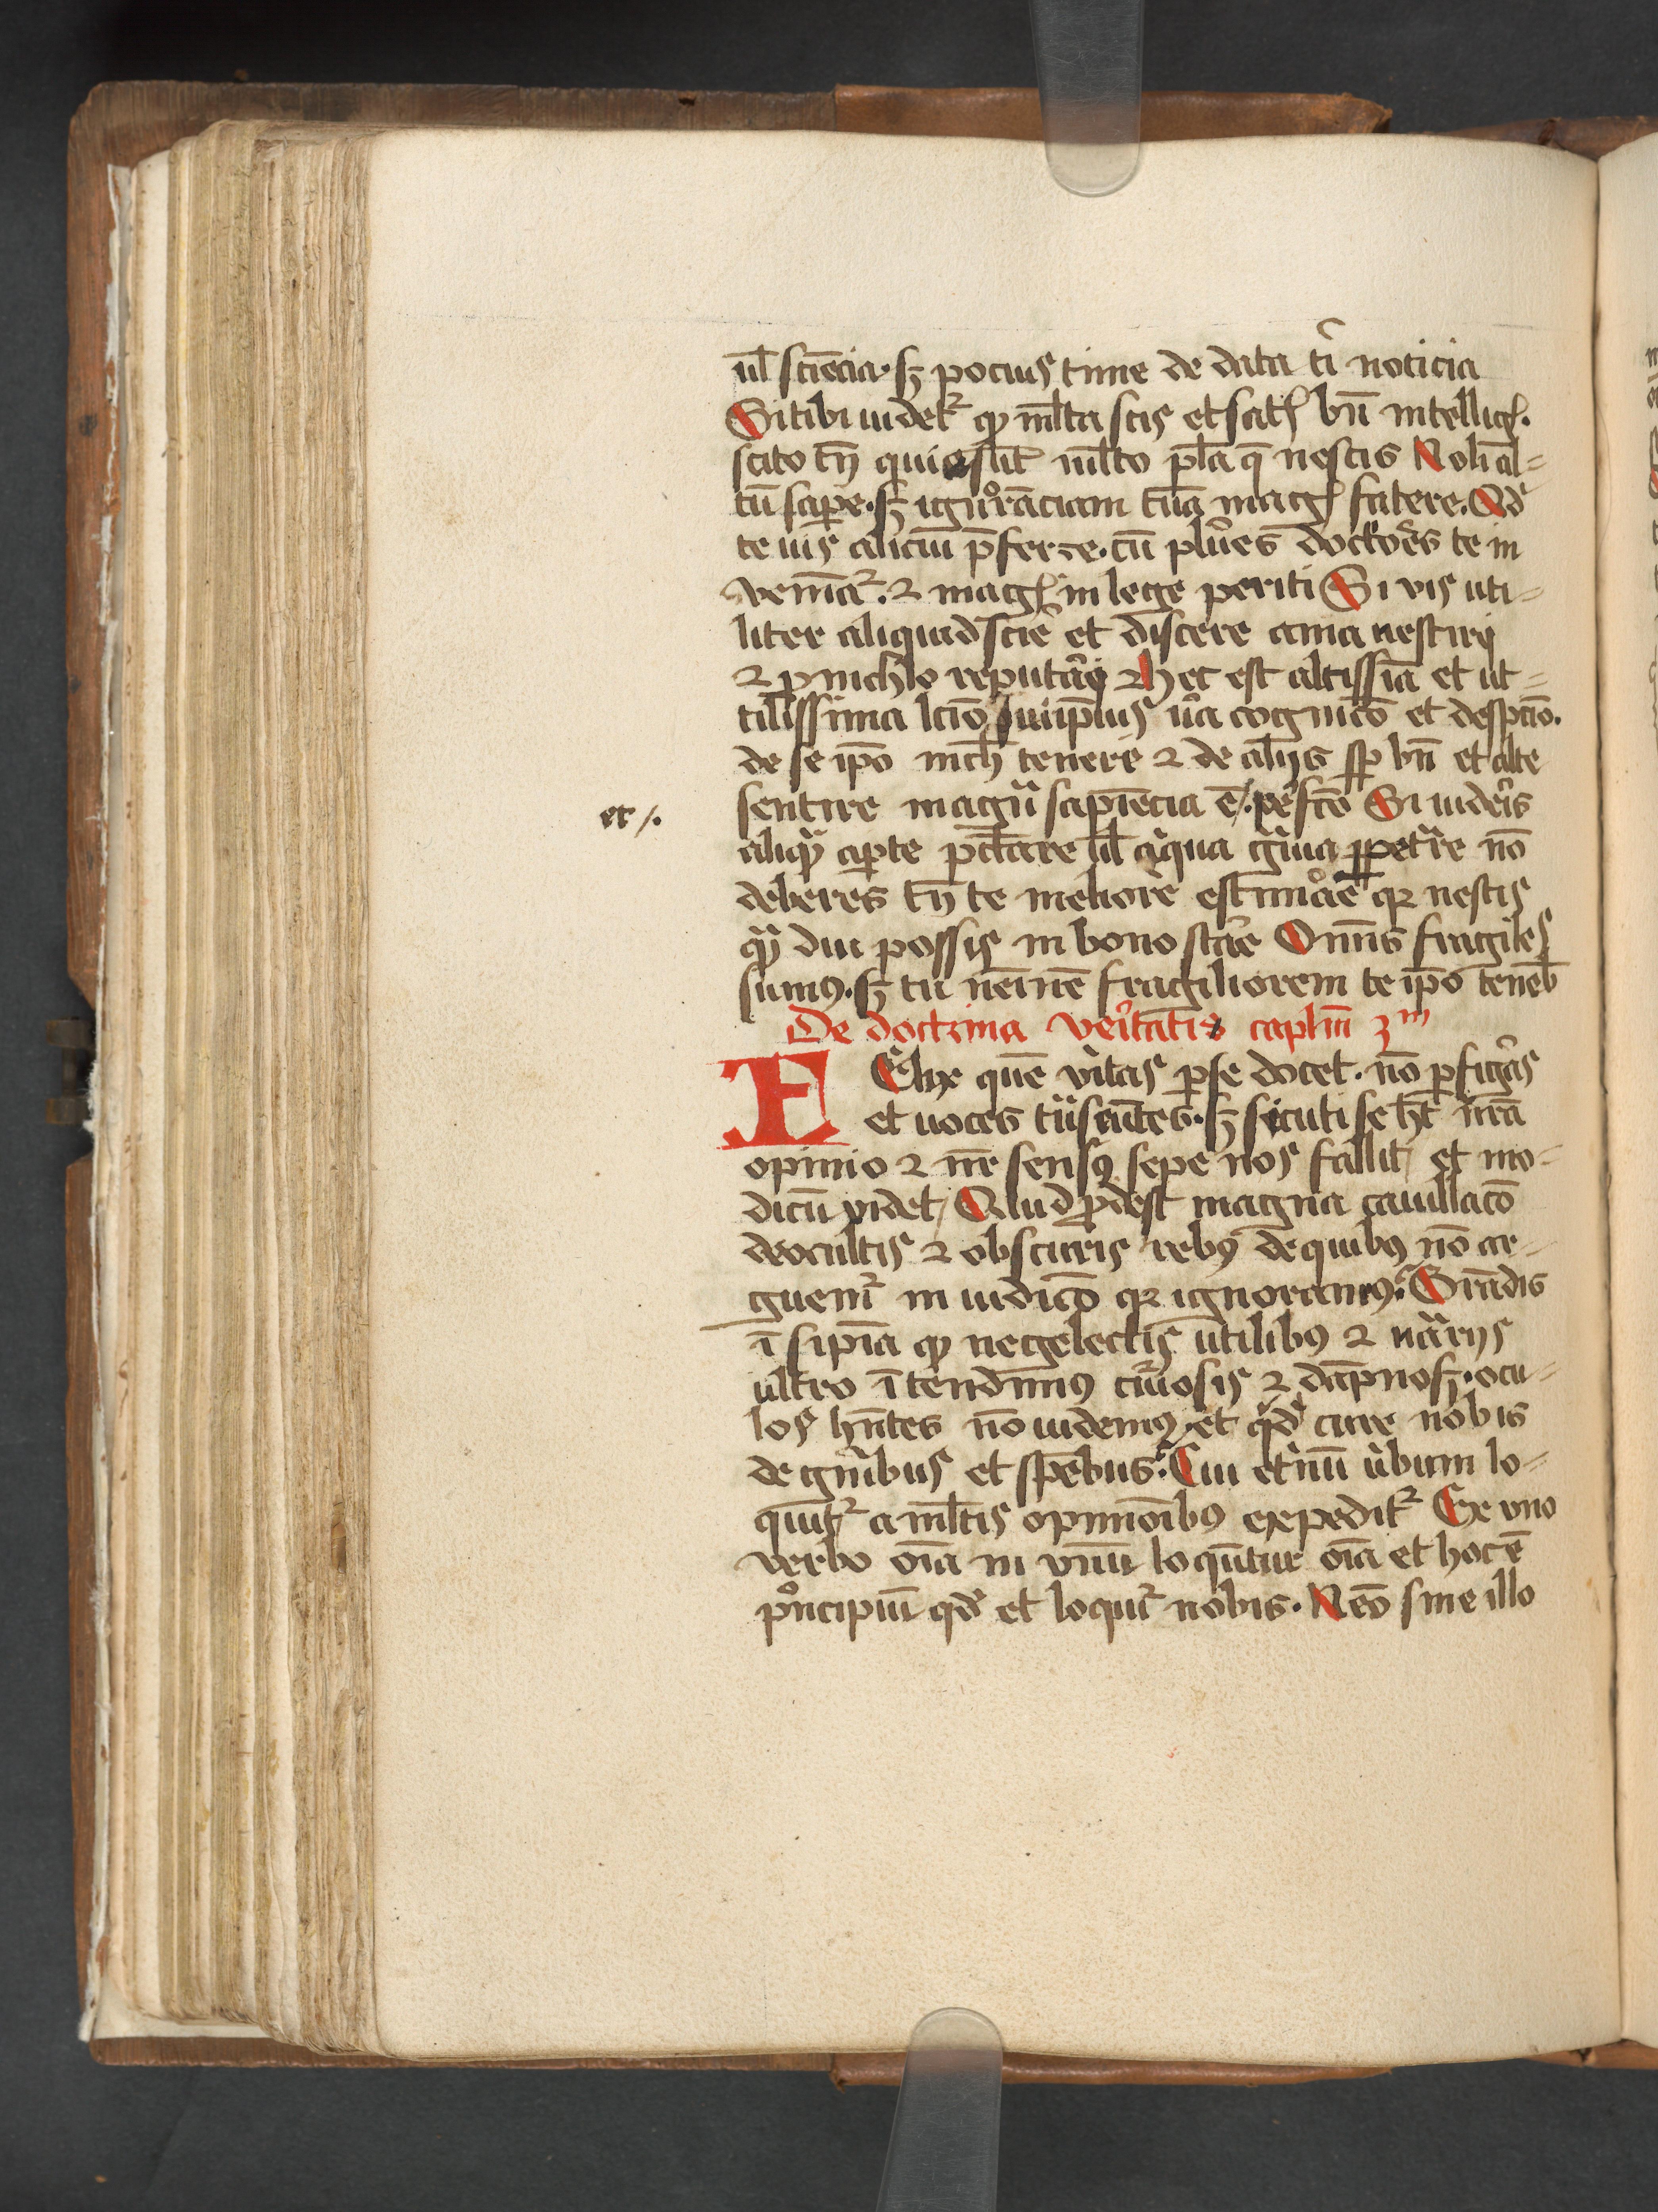 ul̄ sciēcia · sꝫ pocius time de data t̄i noticia
Si tibi uidet᷑ ꝙ ml̄ta scis et satꝭ bn̄ intelligꝭ.
scito tn̄ quia sūt ml̄to pl̄a q̄ nescis Noli al=
tū sape͛. sꝫ ignorāciam tuā magꝭ fatere. Qd͛
te uis alicui p̄ferre. cū plu͛es doctiores te in
veniāt᷑. ⁊ magꝭ in lege periti Si vis uti=
liter aliquid scire et discere ama nesciri
⁊ ꝓ nichilo reputari Hec est altissīa et ut=
tilissima lcio̅ sui ipius ūa cognico̅ et despcio̅.
de se ip̄o nich̄ tenere ⁊ de alijs sꝑ bn̄ et alte
et /.
sentire magn̄ sapiēcia ē /. pe͛fcō Si uide͛is
aliqͣ aꝑte pcc̄are ul̄ aͥqua gͣuia ꝑpetͣre nō
deberes tn̄ te meliorē estimare qꝛ nescis
qͣ diu possis in bono stare Omnes fragiles
sumꝰ. sꝫ tu nēinē fragiliorem te ip̄o teneb̄
De doctrina ve͛itatis caplm̄ 3ᵐ
FElix quē vi͛tas ꝑ se docet. nō ꝑ figu͛as
et uoces tͣnseūtes. sꝫ sicuti se hꝫ nr̄a
opinio ⁊ nr̄ sensꝰ sepe nos fallit / et mo=
dicū videt / Quid ꝓdest magna cauillaco̅
de ocultis ⁊ obscuris rebꝰ de quibꝰ nō ar=
guem᷑ in iudico̅ qꝛ ignorauimꝰ. Grādis
ī sipīa ꝙ negelectis utilibꝰ ⁊ nāriis
ultro ītendimꝰ cu͛iosis ⁊ dāpnosꝫ. ocu=
los hn̄tes nō uidemꝰ. et qͥd cure nobis
de gn̄ibus et sp̄ebus. Cui et͛nū u͛bum lo=
quit᷑ a ml̄tis opinioibꝰ expedit᷑ Ex vno
verbo oīa in vnū loqūtur oīa et hoc ē
pͥncipiū qd͛ et loquit᷑ nobis. Nēo sine illo